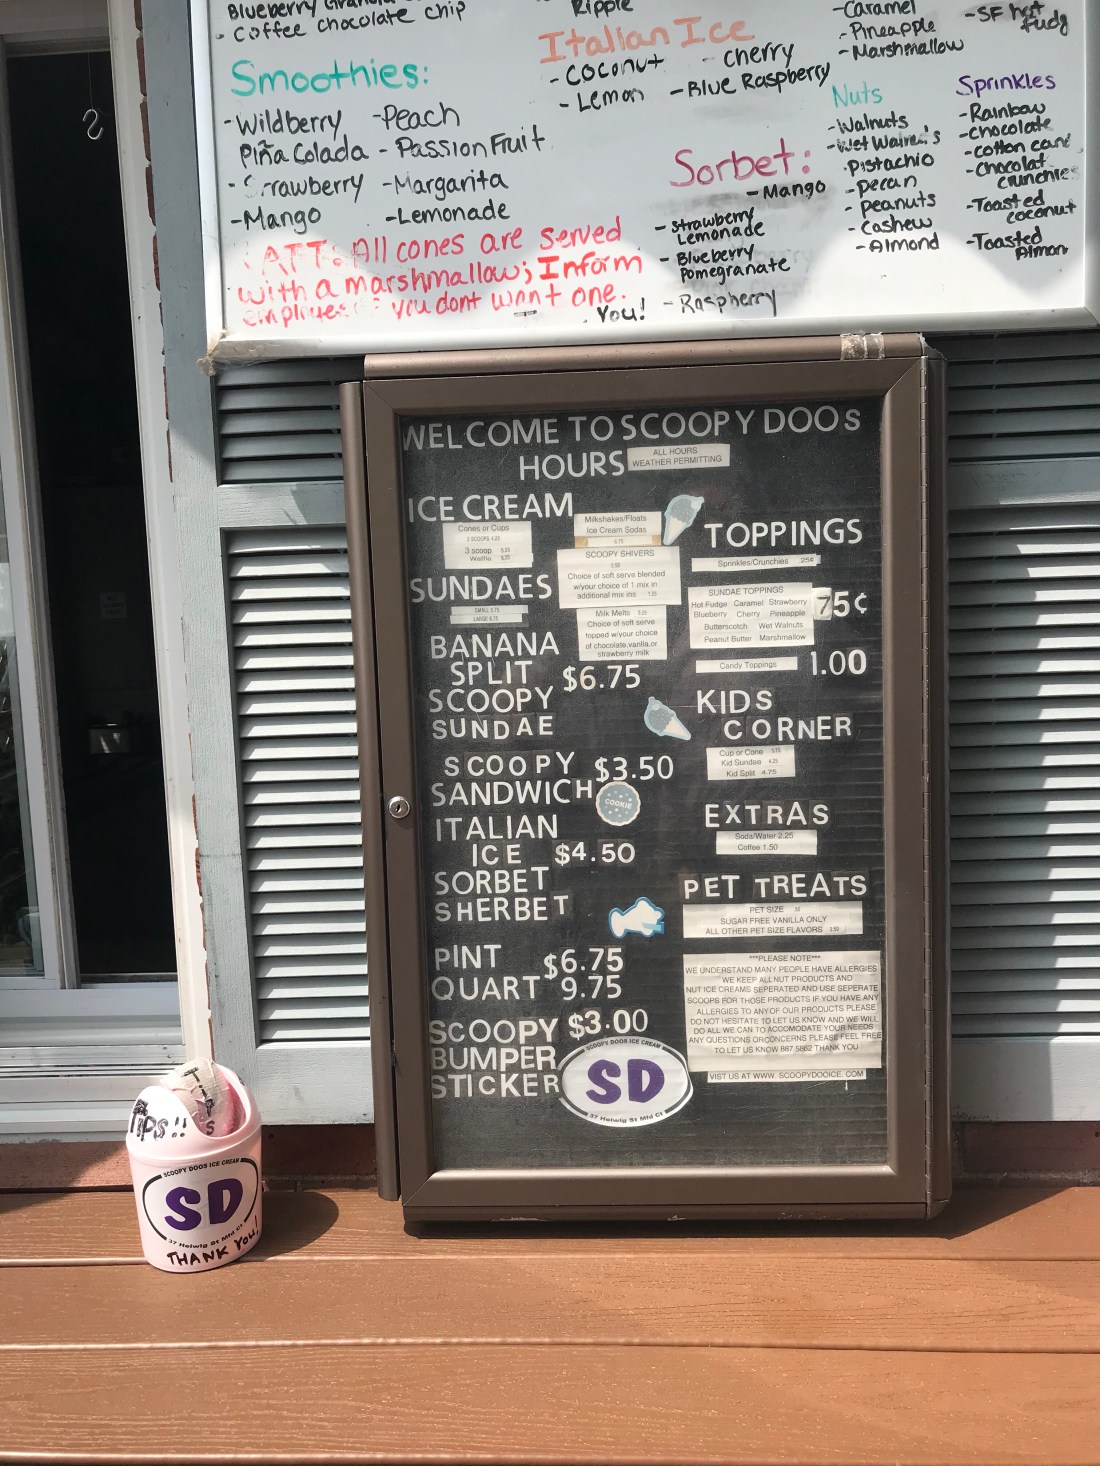 Blueberry
- Coffee chocolate chip
Smoothies:
- Wildberry
Piña Colada
- Strawberry
- Mango
- Peach
- Passion Fruit
- Margarita
- Lemonade
ATT: All cones are served
with a marshmallow; Inform
you dont want one.
You!
Ripple
Italian Ice
- Coconut
- Lemon
- Cherry
- Blue Raspberry
Sorbet:
- Mango
- Strawberry
Lemonade
- Blueberry
Pomegranate
- Raspberry
- Caramel
- Pineapple
- Marshmallow
- SF hot
fudg
Nuts
- Walnuts
- Pistachio
- Pecan
- Peanuts
- Cashew
- Almond
Sprinkles
- Rainbow
- Chocolate
- Cotton cand
- Chocolat
crunchies
- Toasted
coconut
- Toasted
Almon
WELCOME TO SCOOPY DOOS
HOURS
ALL HOURS
WEATHER PERMITTING
ICE CREAM
Cones or Cups
2 SCOOPS 4.25
3 scoop 5.25
Waffle 6.25
Milkshakes/Floats
Ice Cream Sodas
5.75
SCOOPY SHIVERS
Choice of soft serve blended
w/your choice of 1 mix in
additional mix ins
SUNDAES
SMALL 5.75
LARGE 6.75
Milk Melts
Choice of soft serve
topped w/your choice
of chocolate,vanilla,or
strawberry milk
BANANA
SPLIT $6.75
SCOOPY
SUNDAE
SCOOPY $3.50
SANDWICH
COOKIE
ITALIAN
ICE $4.50
SORBET
SHERBET
PINT $6.75
QUART 9.75
SCOOPY $3.00
BUMPER
STICKER
SCOOPY DOOS ICE CREAM
SD
37 Helwig St Mfd Ct
TOPPINGS
Sprinkles/Crunchies 25¢
SUNDAE TOPPINGS
Hot Fudge Caramel Strawberry
Blueberry Cherry Pineapple
Butterscotch Wet Walnuts
Peanut Butter Marshmallow
75¢
Candy Toppings 1.00
KIDS
CORNER
Cup or Cone
Kid Sundae 4.25
Kid Split 4.75
EXTRAS
Soda/Water 2.25
Coffee 1.50
PET TREATS
PET SIZE
SUGAR FREE VANILLA ONLY
ALL OTHER PET SIZE FLAVORS
***PLEASE NOTE***
WE UNDERSTAND MANY PEOPLE HAVE ALLERGIES
WE KEEP ALL NUT PRODUCTS AND
NUT ICE CREAMS SEPERATED AND USE SEPERATE
SCOOPS FOR THOSE PRODUCTS IF YOU HAVE ANY
ALLERGIES TO ANY OF OUR PRODUCTS PLEASE
DO NOT HESITATE TO LET US KNOW AND WE WILL
DO ALL WE CAN TO ACCOMODATE YOUR NEEDS
ANY QUESTIONS OR CONCERNS PLEASE FEEL FREE
TO LET US KNOW 887 5862 THANK YOU
VIST US AT WWW. SCOOPYDOOICE. COM
TIPS
TIPS!!
SCOOPY DOOS ICE CREAM
SD
37 Helwig St Mfd Ct
THANK YOU!